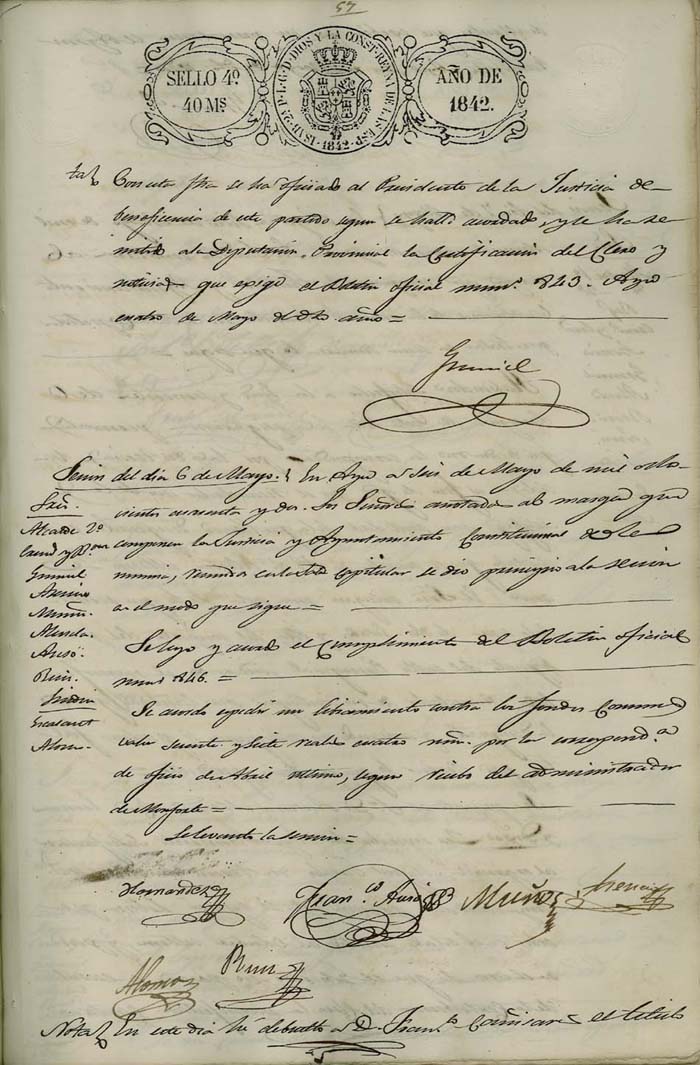 57
SELLO 4º
40 Ms
ISAB. 2ª P. L. G. D. DIOS Y LA CONST. REYNA DE LAS ESP.
1842
AÑO DE
1842.
Con esta fha se ha oficiado al Presidente de la Justicia de
beneficencia de este partido segun se halla acordado, y se ha re
mitido a la Diputacion Provincial la Certificacion del Clero y
que exige el Boletin oficial num.º 1843.
cuatro de Mayo de dho año =
Sesion del dia 6 de Mayo. En á seis de Mayo de mil ocho
cientos cuarenta y dos. Los Señores anotados al margen que
componen la Justicia y Ayuntamiento Constitucional de
misma, reunidos en la Sala Capitular se dio principio a la sesion
en el modo que sigue =
Sres.
Alcalde 2º
Gumiel
Asencio
Muñ.
Ruiz.
Alonso.
Se leyó y acordó el cumplimiento del Boletin oficial
num.º 1846. =
Se acordó expedir un libramiento contra los fondos Comunes
valor y siete reales cuatro mrs. por la correspond.ª
de oficio de Abril ultimo, segun recibo del administrador
de Monforte =
Se levantó la sesion =
Hernandez
Fran.co
Muñoz
Asencio
Alonso
Ruiz
Nota En este dia hé debuelto a D. Fran.co el titulo